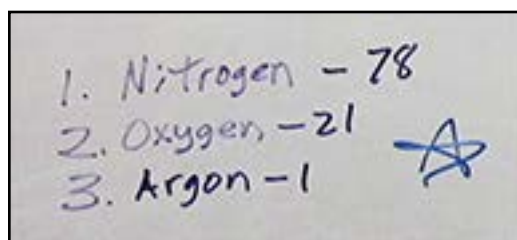 1. Nitrogen - 78
2. Oxygen - 21
3. Argon - 1